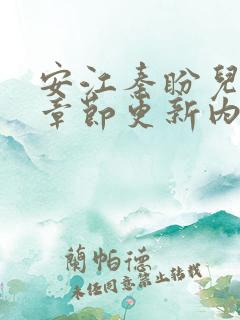 安江秦盼兒
章節更新內
蘭帕德
未经同意禁止转载